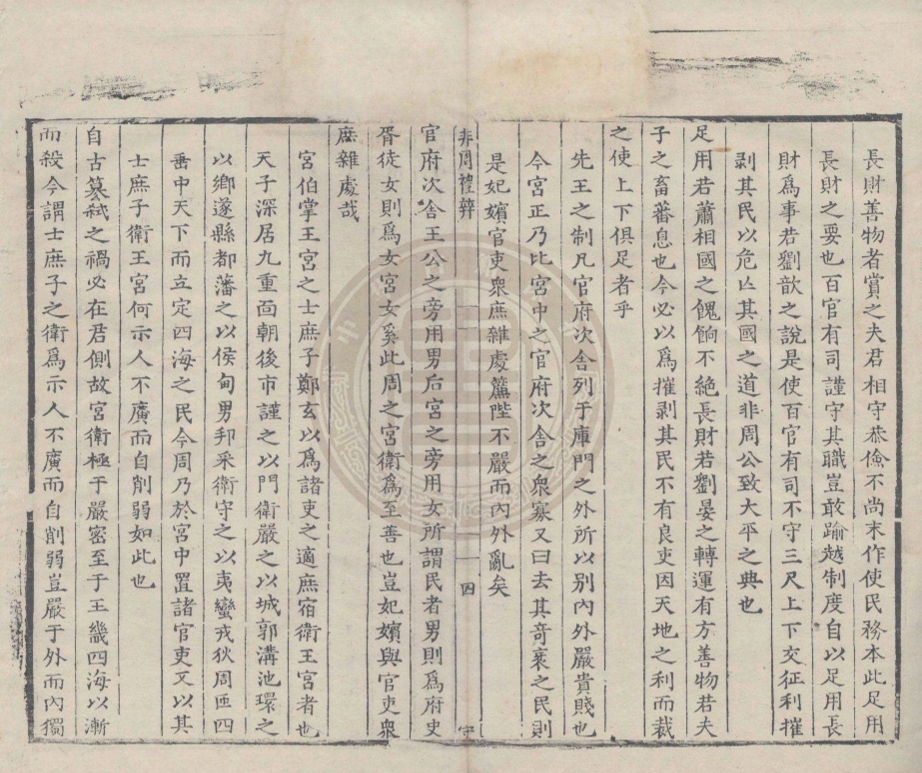 長財善物者賞之夫君相守恭儉不尚末作使民務本此足用
長財之要也百官有司謹守其職豈敢踰越制度自以足用長
財爲事若劉歆之說是使百官有司不守三尺上下交征利摧
剥其民以危亡其國之道非周公致大平之典也
足用若蕭相國之餽餉不絶長財若劉晏之轉運有方善物若夫
子之畜蕃息也今必以爲摧剥其民不有良吏因天地之利而裁
之使上下俱足者乎
先王之制凡官府次舎列于庫門之外所以别內外嚴貴賤也
今宮正乃比宮中之官府次舎之衆寡又曰去其奇衺之民則
是妃嬪官吏衆庶雜處簾陛不嚴而內外亂矣
非周禮辨
四
官府次舎王公之旁用男后宮之旁用女所謂民者男則爲府史
胥徒女則爲女宮女奚此周之宮衛爲至善也豈妃嬪與官吏衆
庶雜處哉
宮伯掌王宮之士庶子鄭玄以爲諸吏之適庶宿衛王宮者也
天子深居九重面朝後市謹之以門衛嚴之以城郭溝池環之
以鄉遂縣都藩之以侯甸男邦采衛守之以夷蠻戎狄周匝四
垂中天下而立定四海之民今周乃於宮中置諸官吏又以其
士庶子衛王宮何示人不廣而自削弱如此也
自古簒弑之禍必在君側故宮衛極于嚴密至于王畿四海以漸
而殺今謂士庶子之衛爲示人不廣而自削弱豈嚴于外而內獨